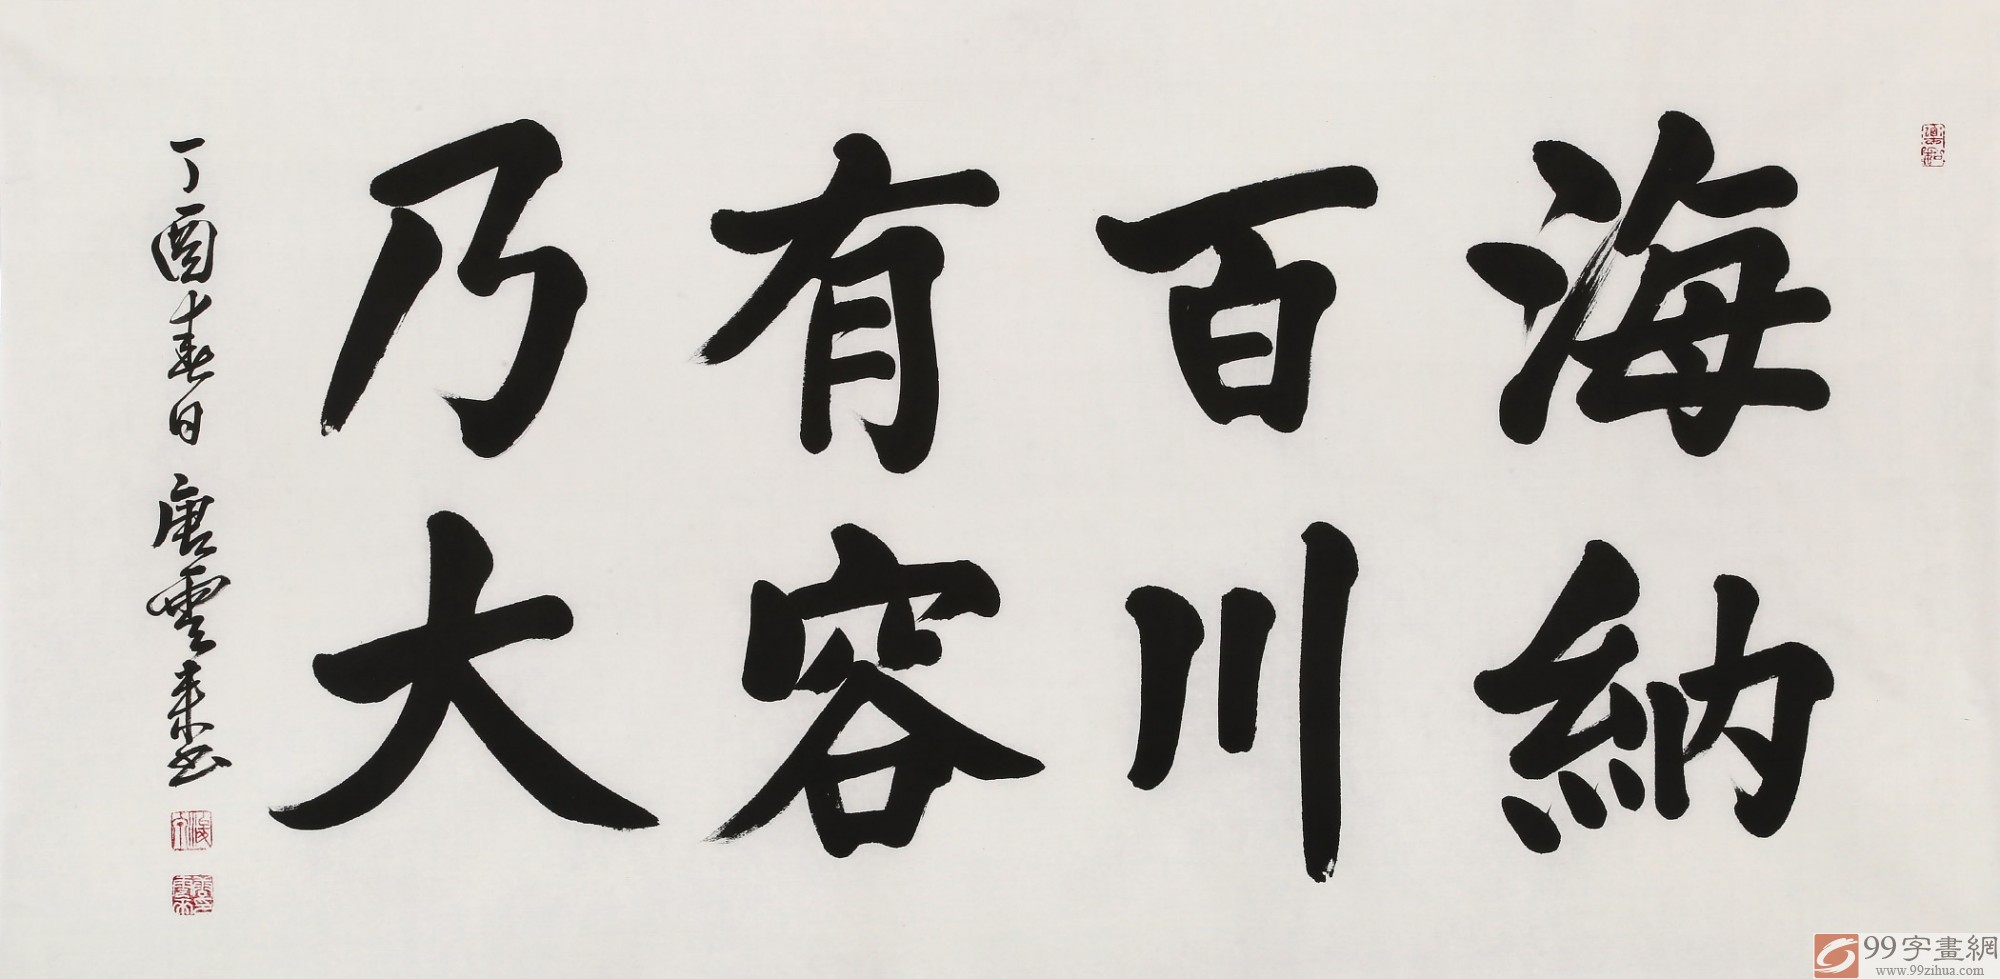 海納
百川
有容
乃大
丁酉春日 唐雲來書
99字畫網
www.99zihua.com